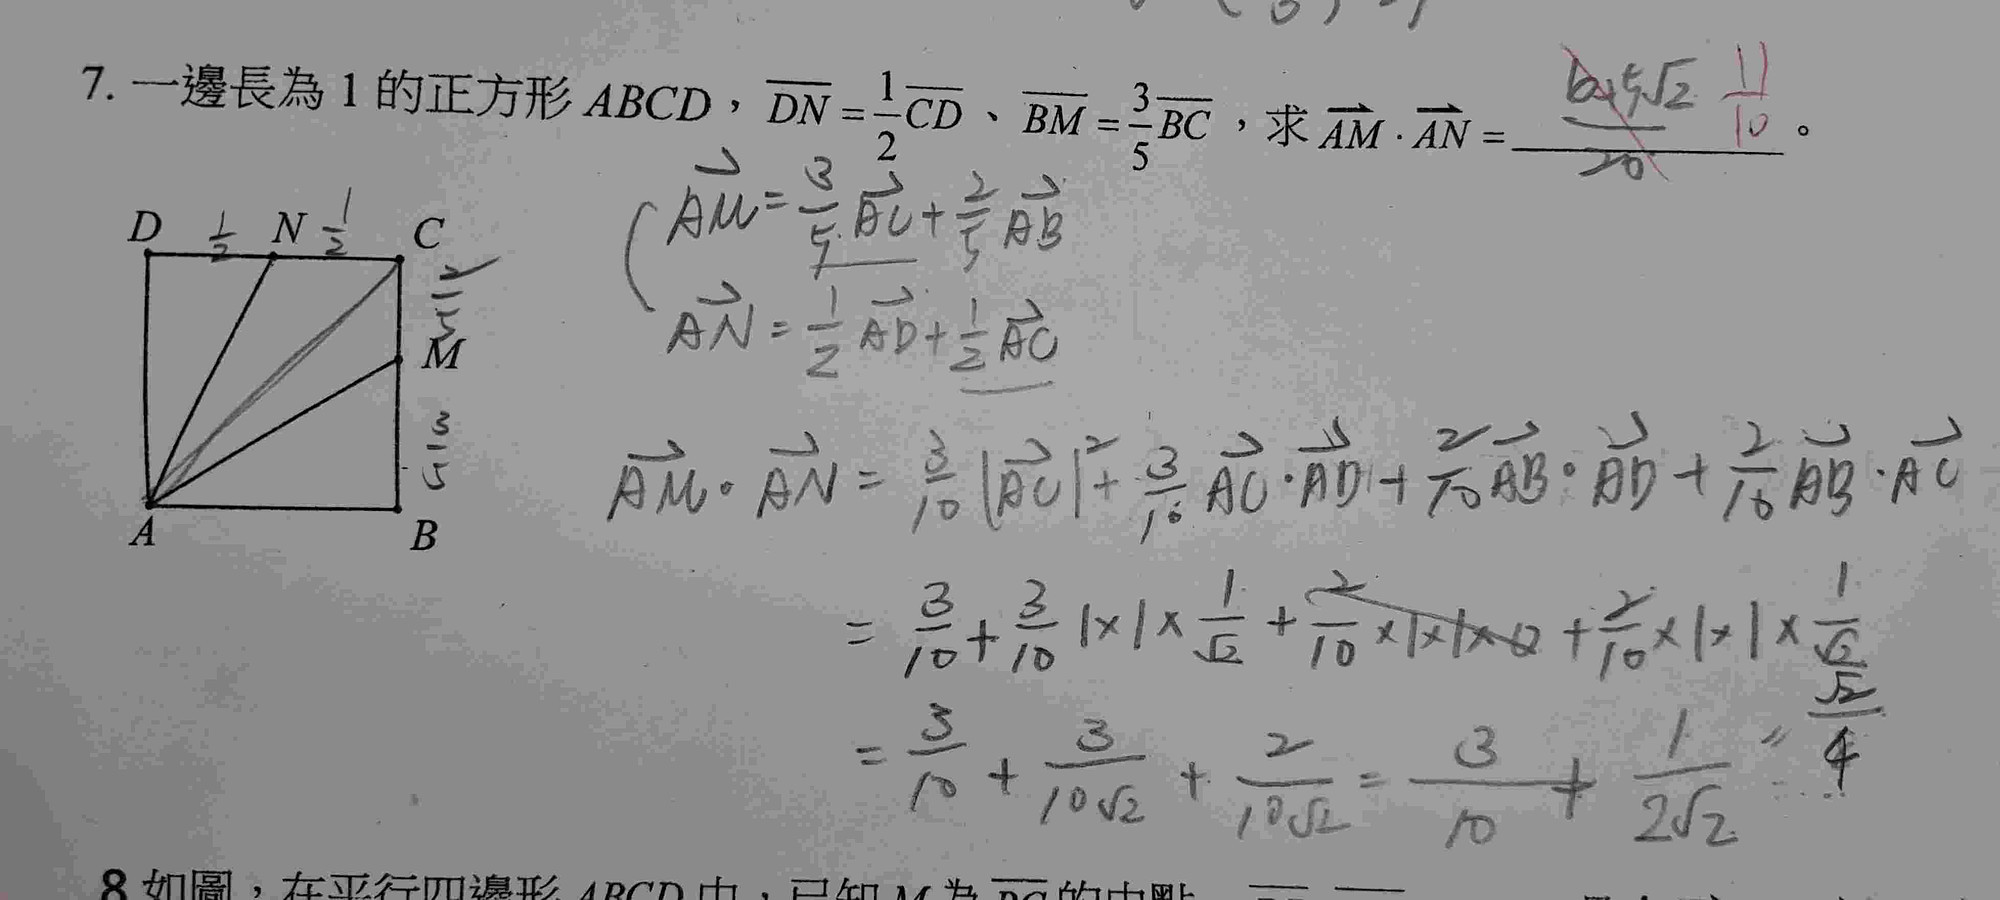 7. 一邊長為 1 的正方形 ABCD，\overline{DN} = \frac{1}{2}\overline{CD}、\overline{BM} = \frac{3}{5}\overline{BC}，求 \overrightarrow{AM} · \overrightarrow{AN} = \frac{6+5√2}{20} \frac{11}{10}。
\overrightarrow{AM} = \frac{3}{5}\overrightarrow{AC} + \frac{2}{5}\overrightarrow{AB}
\overrightarrow{AN} = \frac{1}{2}\overrightarrow{AD} + \frac{1}{2}\overrightarrow{AC}
D \frac{1}{2} N \frac{1}{2} C
\frac{2}{5}
M
\frac{3}{5}
A B
\overrightarrow{AM} · \overrightarrow{AN} = \frac{3}{10}|\overrightarrow{AC}|^2 + \frac{3}{10}\overrightarrow{AC} · \overrightarrow{AD} + \frac{2}{10}\overrightarrow{AB} · \overrightarrow{AD} + \frac{2}{10}\overrightarrow{AB} · \overrightarrow{AC}
= \frac{3}{10} + \frac{3}{10} 1×1×\frac{1}{√2} + \frac{2}{10}×1×1×0 + \frac{2}{10}×1×1×\frac{1}{√2}
= \frac{3}{10} + \frac{3}{10√2} + \frac{2}{10√2} = \frac{3}{10} + \frac{1}{2√2} = \frac{√2}{4}
8 如圖，在平行四邊形 ABCD 中，已知 M 為 \overline{BC} 的中點